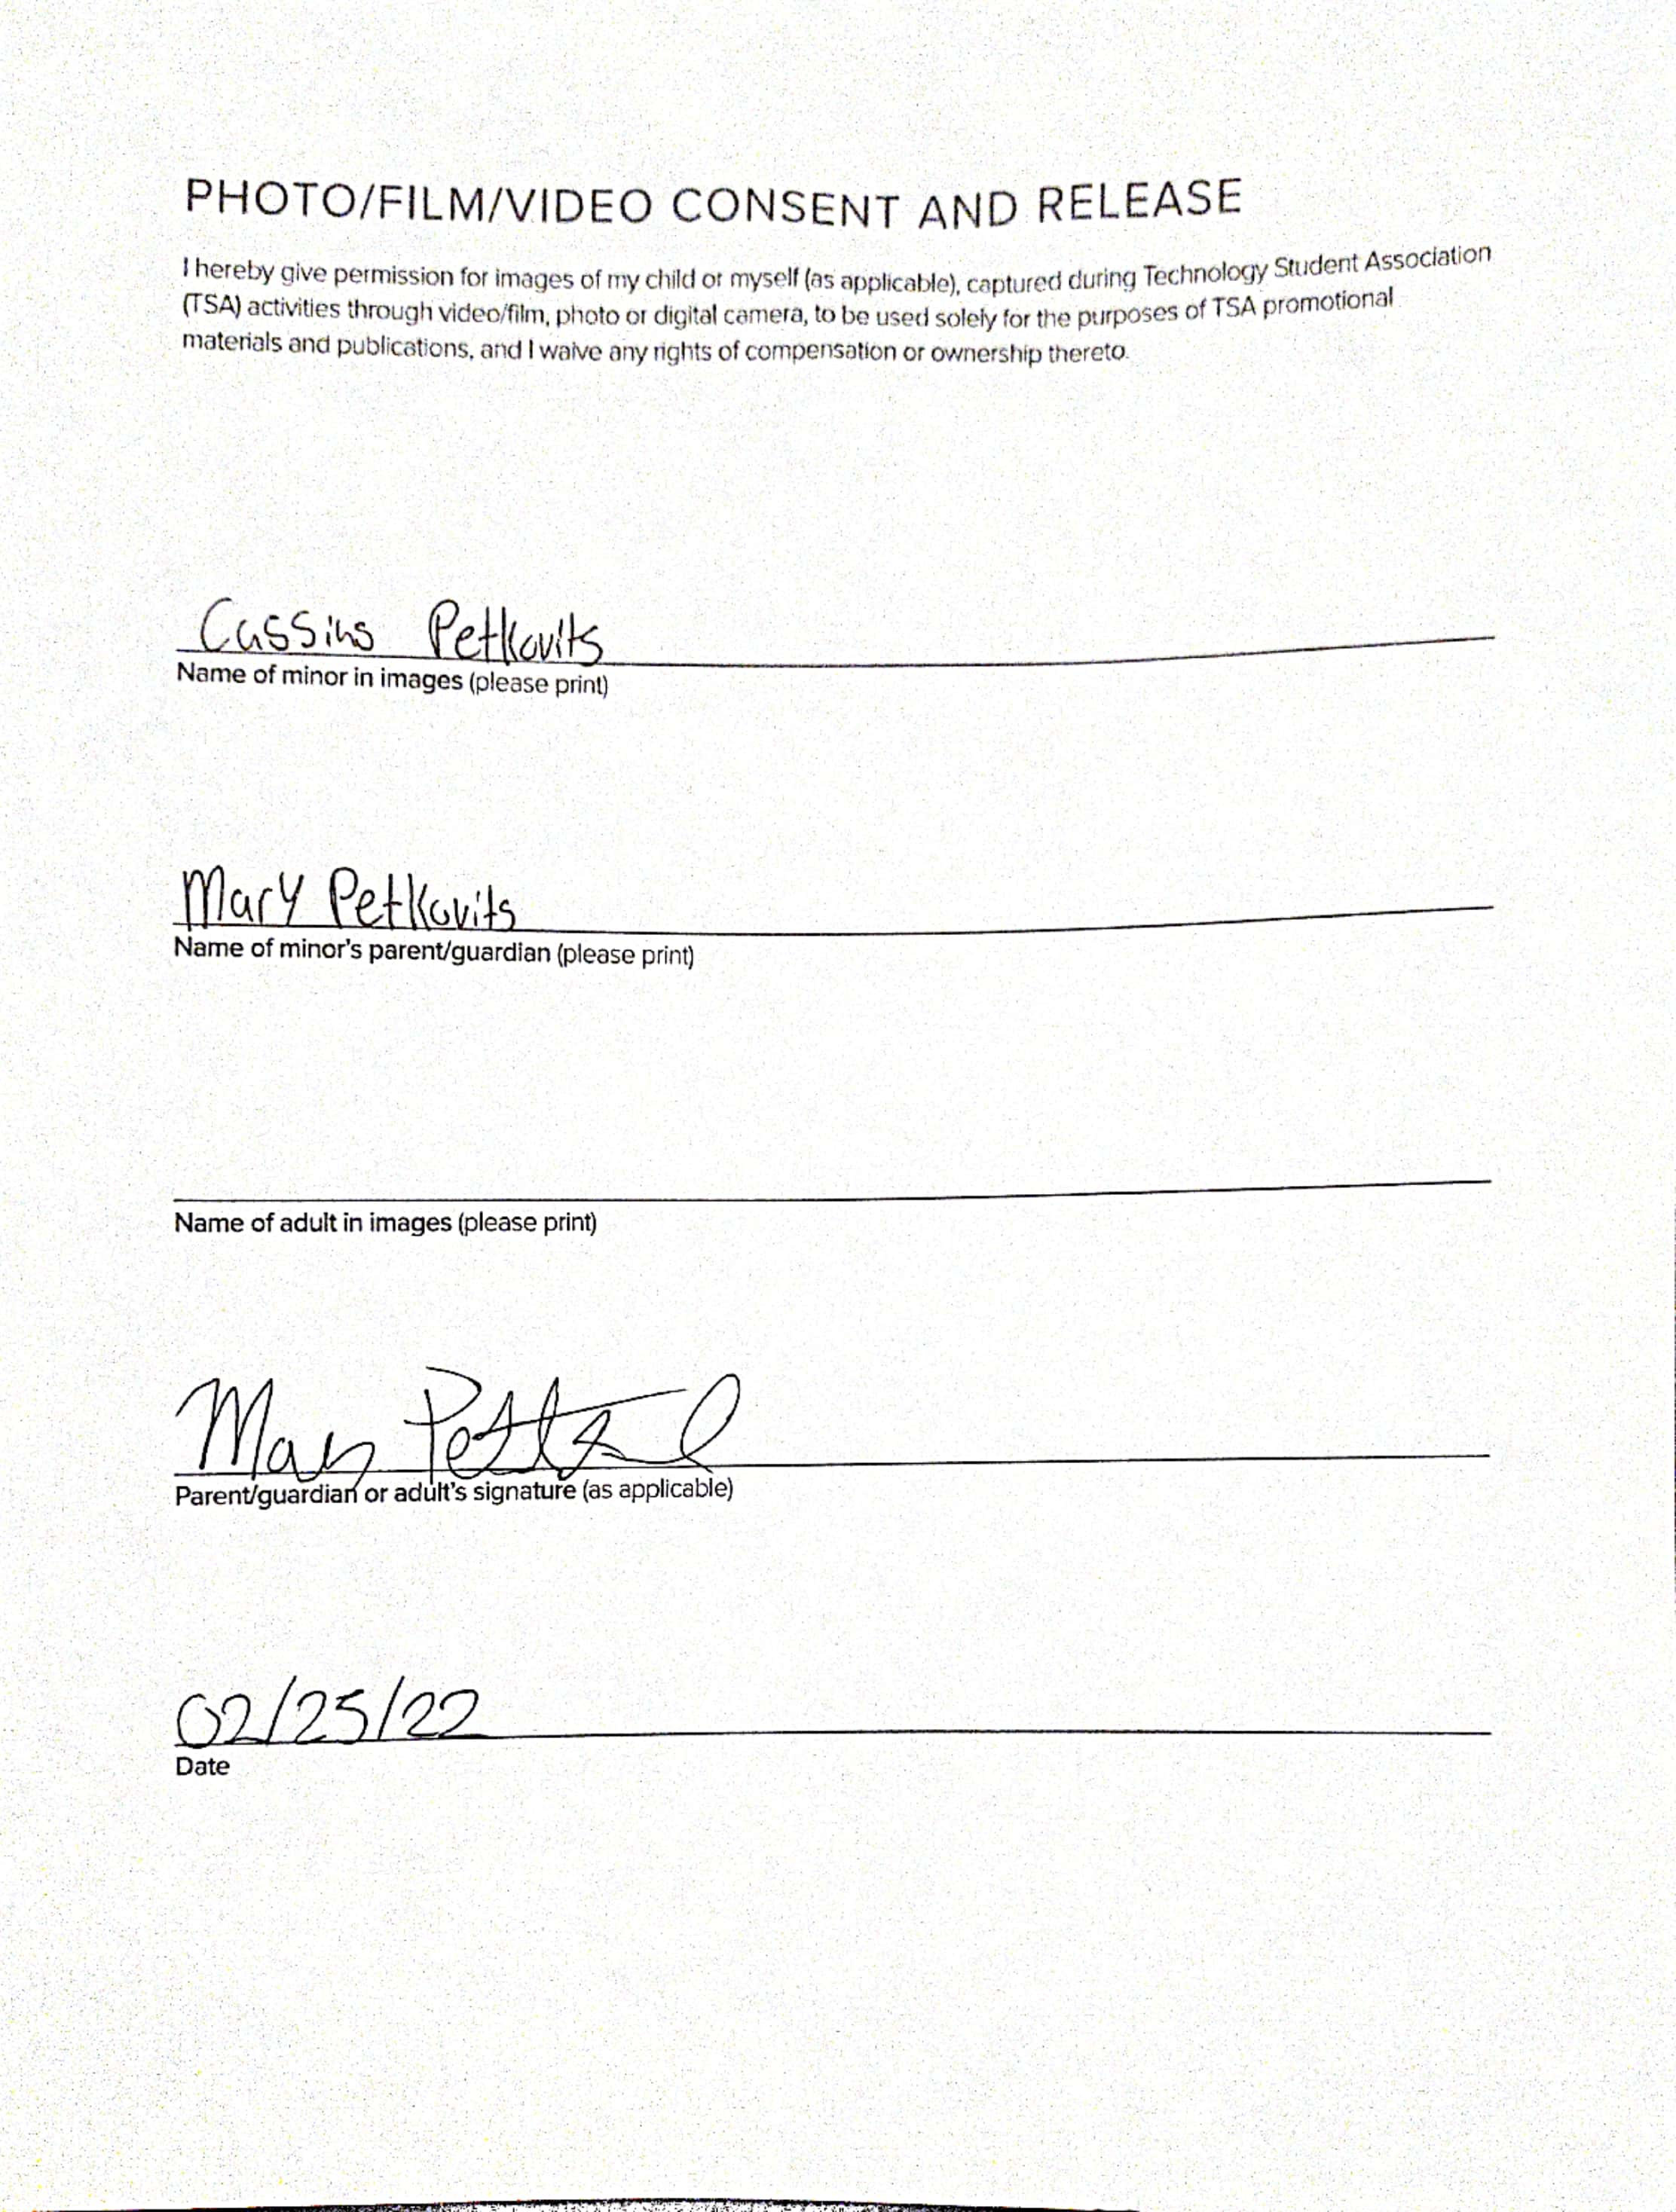 PHOTO/FILM/VIDEO CONSENT AND RELEASE
I hereby give permission for images of my child or myself (as applicable), captured during Technology Student Association
(TSA) activities through video/film, photo or digital camera, to be used solely for the purposes of TSA promotional
materials and publications, and I waive any rights of compensation or ownership thereto.
Cassius Petkovits
Name of minor in images (please print)
Mary Petkovits
Name of minor's parent/guardian (please print)
Name of adult in images (please print)
Mary
Parent/guardian or adult's signature (as applicable)
02/25/22
Date